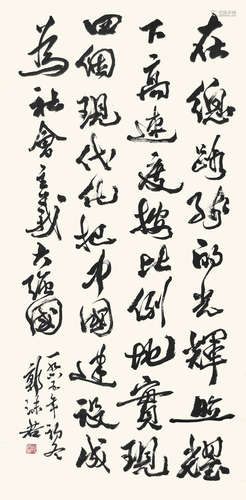 在總路线的光輝照耀
下高速度按比例地實現
四個現代化把中國建設成
為社會主義大强國
一九六五年初冬
郭沫若